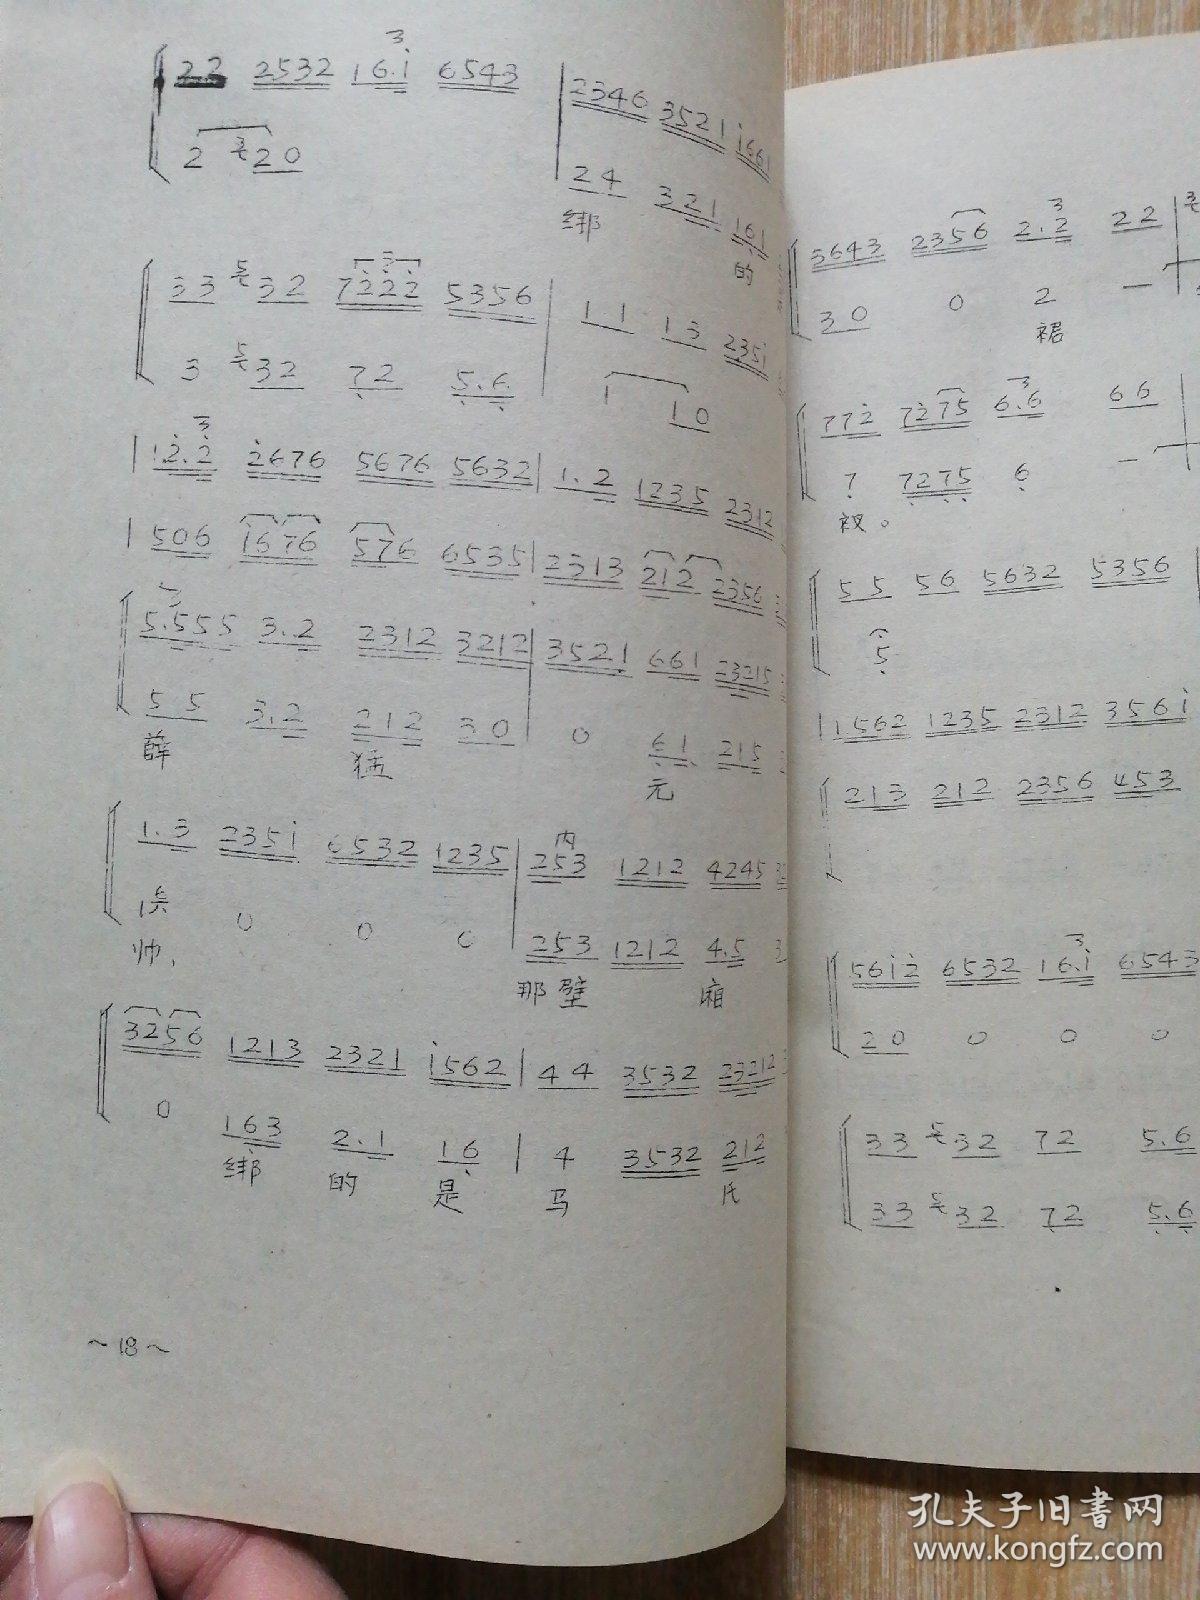 22 2532 16.i 6543 | 2346 3521 i661
2 20 | 24 321 161
绑 的
33 32 7222 5356 | 11 13 235i
3 32 72 5.6 | 1 10
| 12.2 2676 5676 5632 | 1.2 1235 2312
| 506 i676 576 6535 | 2313 212 2356
5.555 3.2 2312 3212 | 3521 661 23215
55 3.2 212 30 | 0 61 215
薛 猛 元
1.3 235i 6532 1235 | 253 1212 4245
内
0 0 0 | 253 1212 4.5 3
帅, 那壁 厢
3256 1213 2321 i562 | 44 3532 23212
0 163 2.1 16 | 4 3532 212
绑 的 是 马 氏
~18~
5643 2356 2.2 22
30 0 2 —
裙
772 7275 6.6 66
7 7275 6 —
衩。
55 56 5632 5356
5
| 1562 1235 2312 356i
213 212 2356 453
56i2 6532 16.i 6543
20 0 0 0
33 32 72 5.6
33 32 72 5.6
孔夫子旧書网
www.kongfz.com